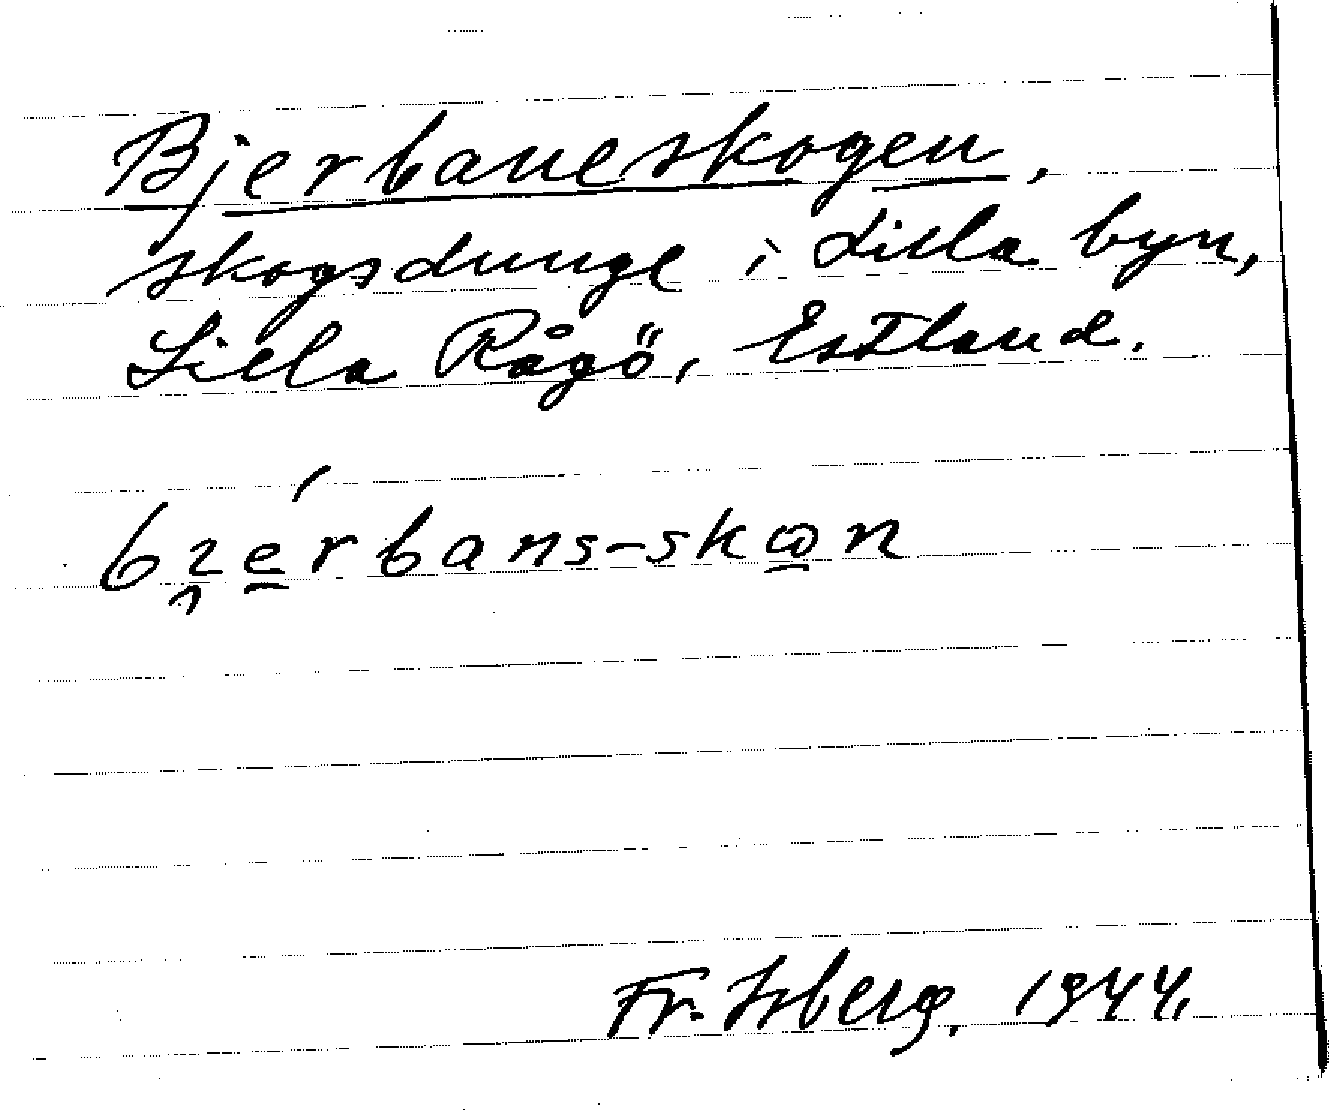 Bjerbaneskogen,
skogsdunge i Lilla byn,
Lilla Rågö, Estland.
bɩ̯é̠rbans-skɷ̠n
Fr. Isberg. 1944.